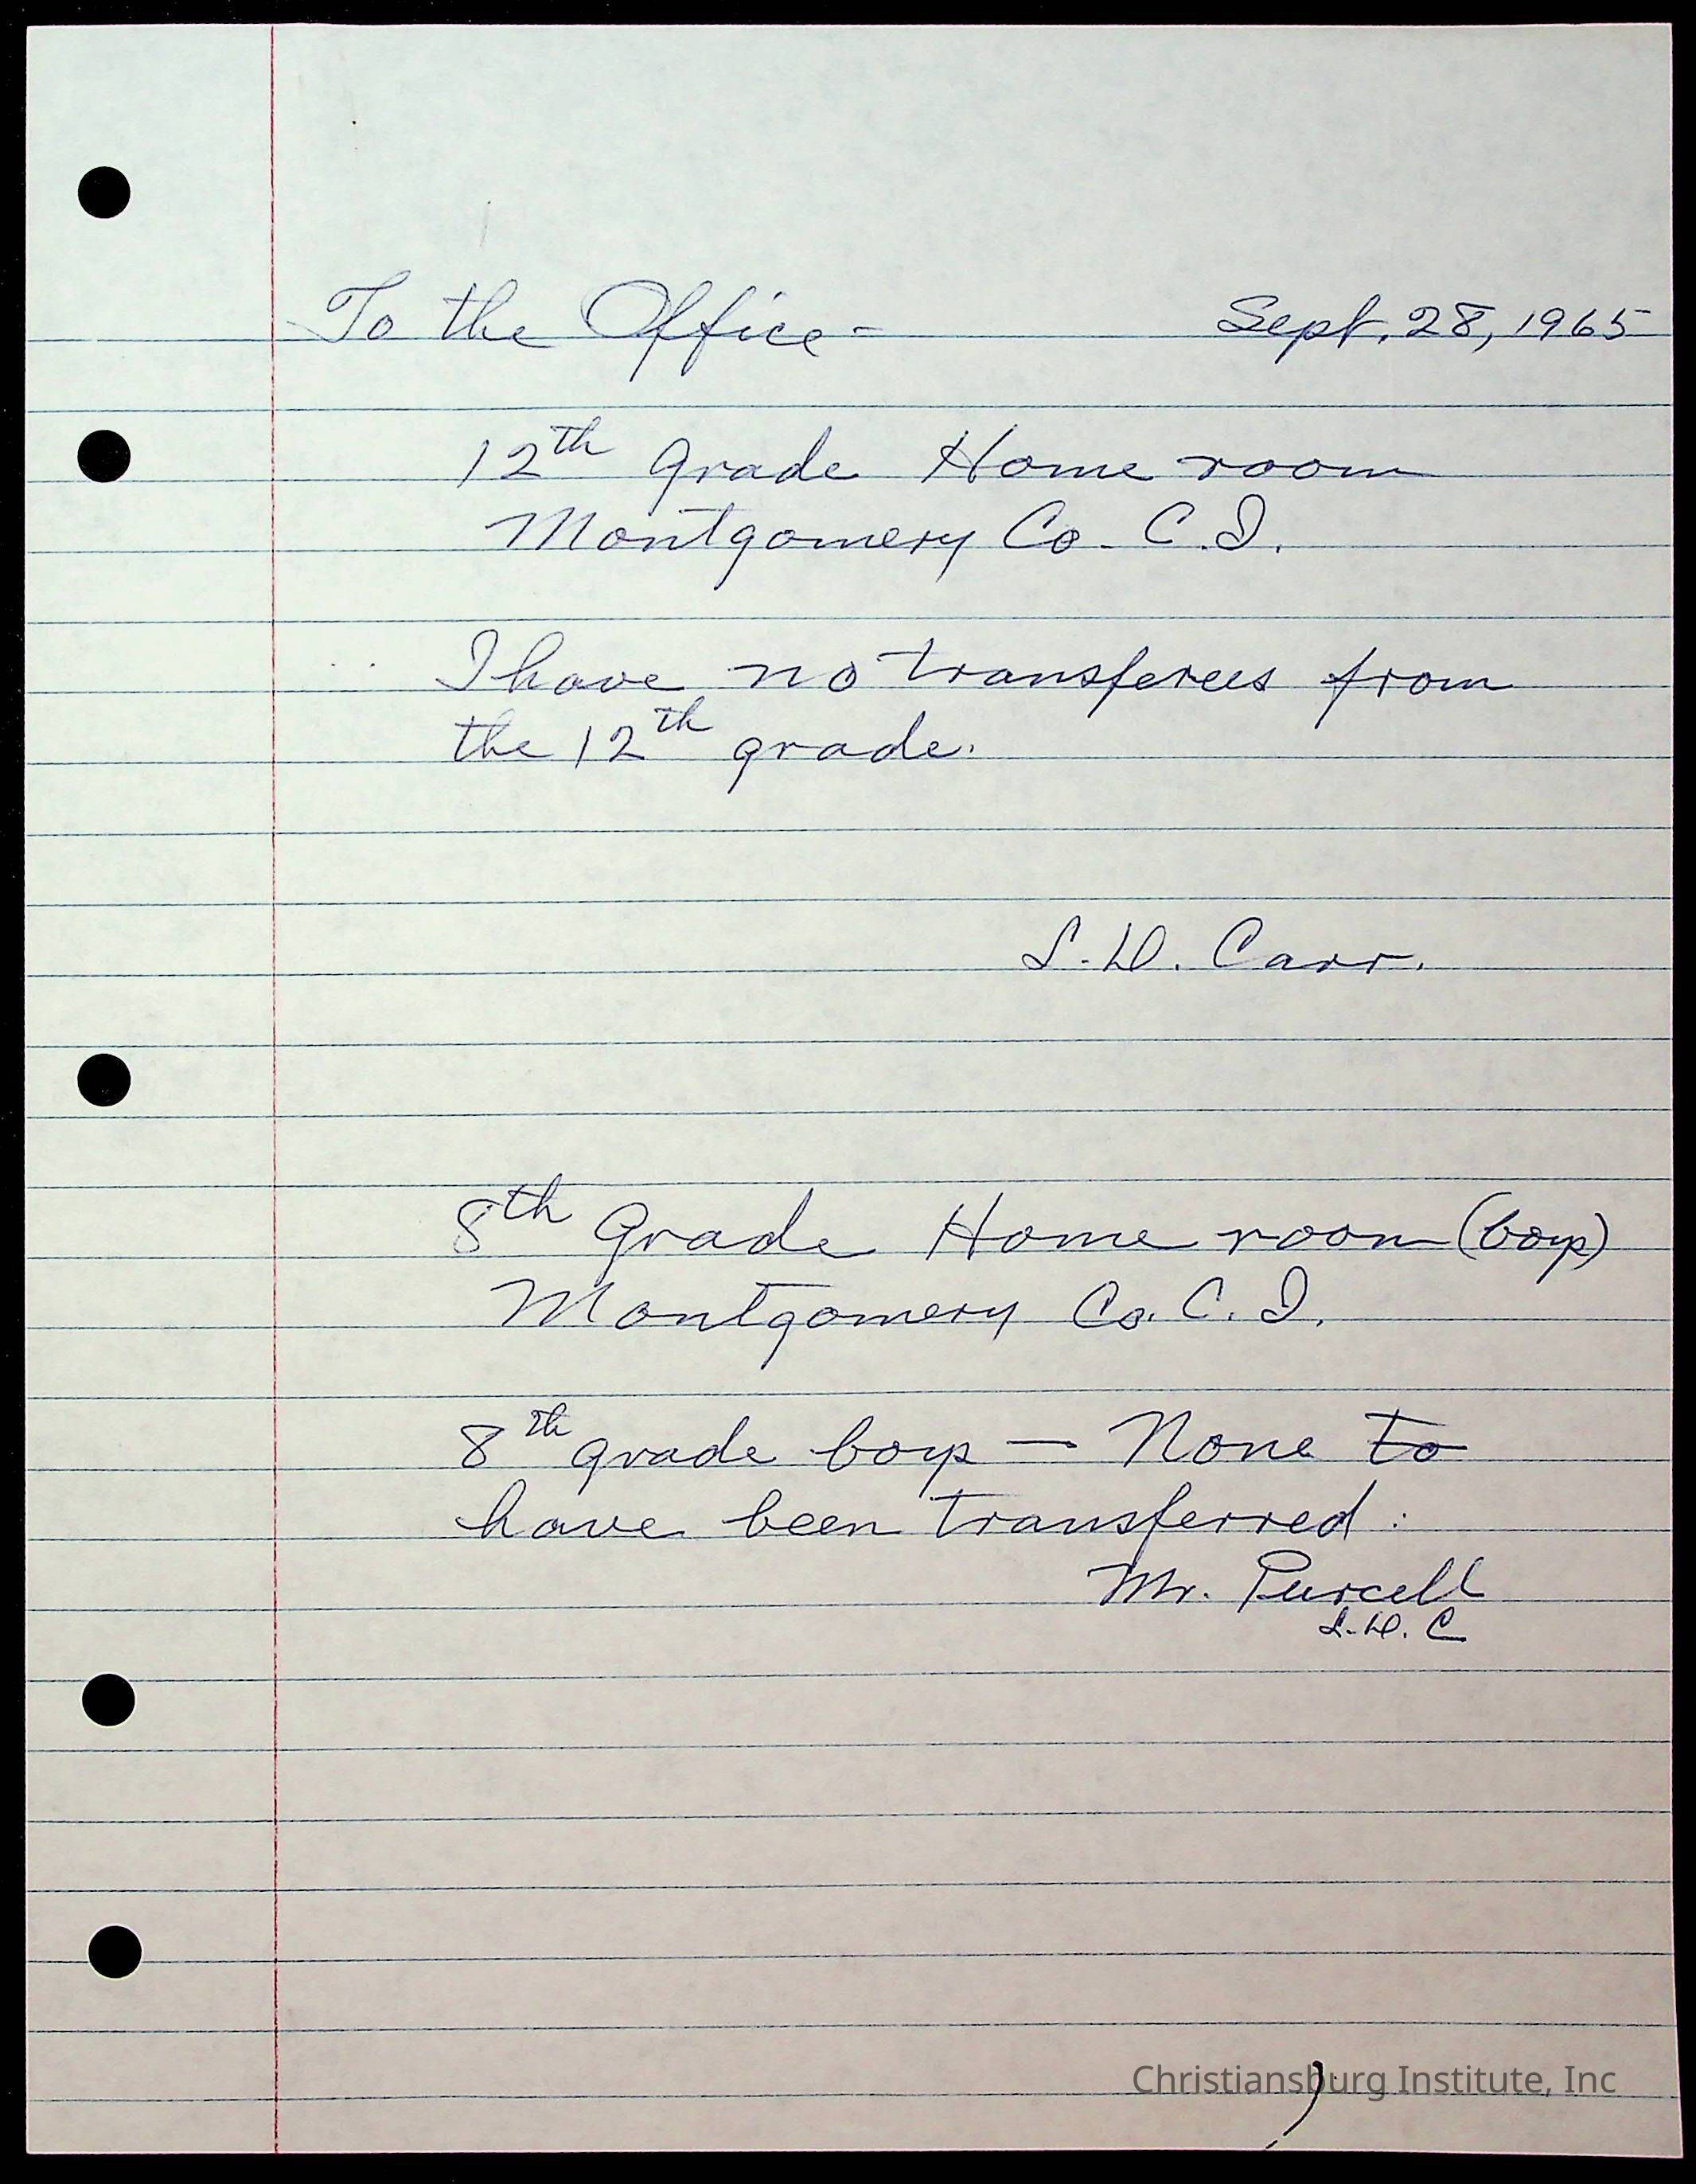 To the Office- Sept. 28, 1965
12th grade Home room
Montgomery Co. C.I.
I have no transferees from
the 12th grade.
S.D. Carr.
8th Grade Home room (boys)
Montgomery Co. C.I.
8th grade boys — None to
have been transferred.
Mr. Purcell
Christiansburg Institute, Inc